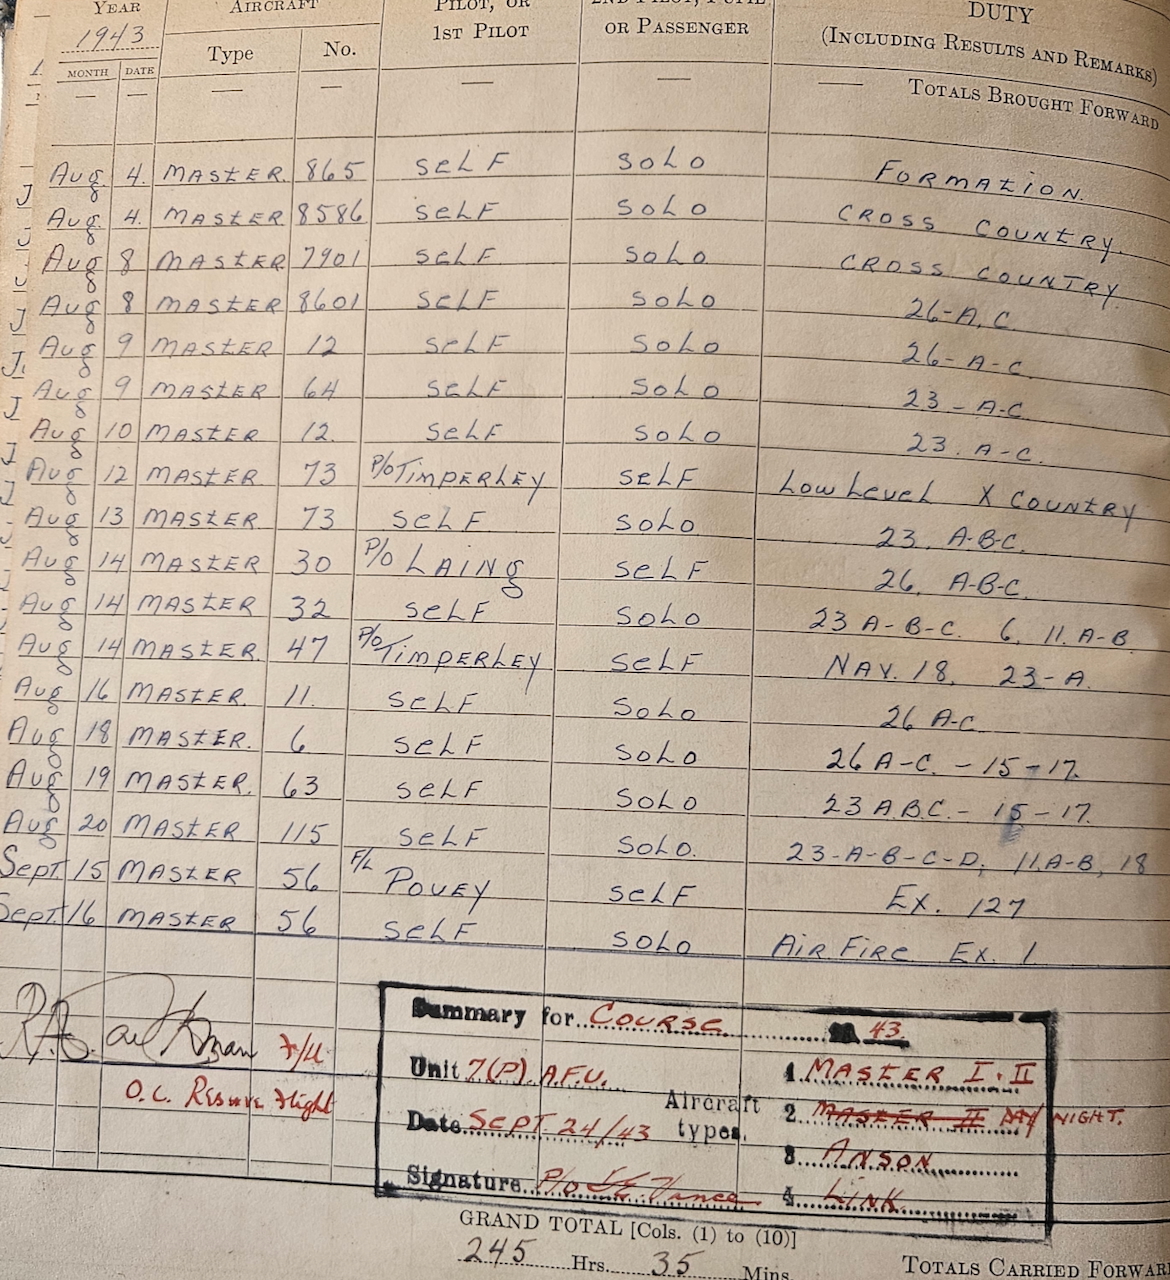 YEAR AIRCRAFT PILOT, OR 2ND PILOT, PUPIL DUTY
1943 Type No. 1ST PILOT OR PASSENGER (INCLUDING RESULTS AND REMARKS)
MONTH DATE
— — — — — — — TOTALS BROUGHT FORWARD
Aug. 4. MASTER. 865 SELF SOLO FORMATION.
Aug. 4. MASTER 8586 SELF SOLO CROSS COUNTRY.
Aug 8 MASTER 7901 SELF SOLO CROSS COUNTRY.
Aug 8 MASTER 8601 SELF SOLO 26-A.C.
Aug 9 MASTER 12 SELF SOLO 26-A-C.
Aug 9 MASTER 64 SELF SOLO 23-A-C.
Aug 10 MASTER 12. SELF SOLO 23. A-C.
Aug 12 MASTER 73 P/O TIMPERLEY SELF LOW LEVEL X COUNTRY
Aug 13 MASTER 73 SELF SOLO 23. A-B-C.
Aug 14 MASTER 30 P/O LAING SELF 26. A-B-C.
Aug 14 MASTER 32 SELF SOLO 23 A-B-C. 6, 11. A-B.
Aug 14 MASTER. 47 P/O TIMPERLEY SELF NAV. 18. 23-A.
Aug 16 MASTER. 11. SELF SOLO 26 A-C.
Aug 18 MASTER. 6 SELF SOLO 26 A-C. - 15-17.
Aug 19 MASTER. 63 SELF SOLO 23 A.B.C. - 15-17.
Aug 20 MASTER 115 SELF SOLO. 23-A-B-C-D, 11.A-B, 18
Sept. 15 MASTER 56 F/L POVEY SELF EX. 127
Sept. 16 MASTER 56 SELF SOLO AIR FIRE EX. 1
F/Lt
O.C. Reserve Flight
Summary for COURSE 43.
Unit 7(P). A.F.U. Aircraft types. 1. MASTER I. II
Date SEPT. 24/43 2. MASTER II DAY NIGHT.
3. ANSON
Signature P/O Vance 4. LINK
GRAND TOTAL [Cols. (1) to (10)]
245 Hrs. 35 Mins. TOTALS CARRIED FORWAR